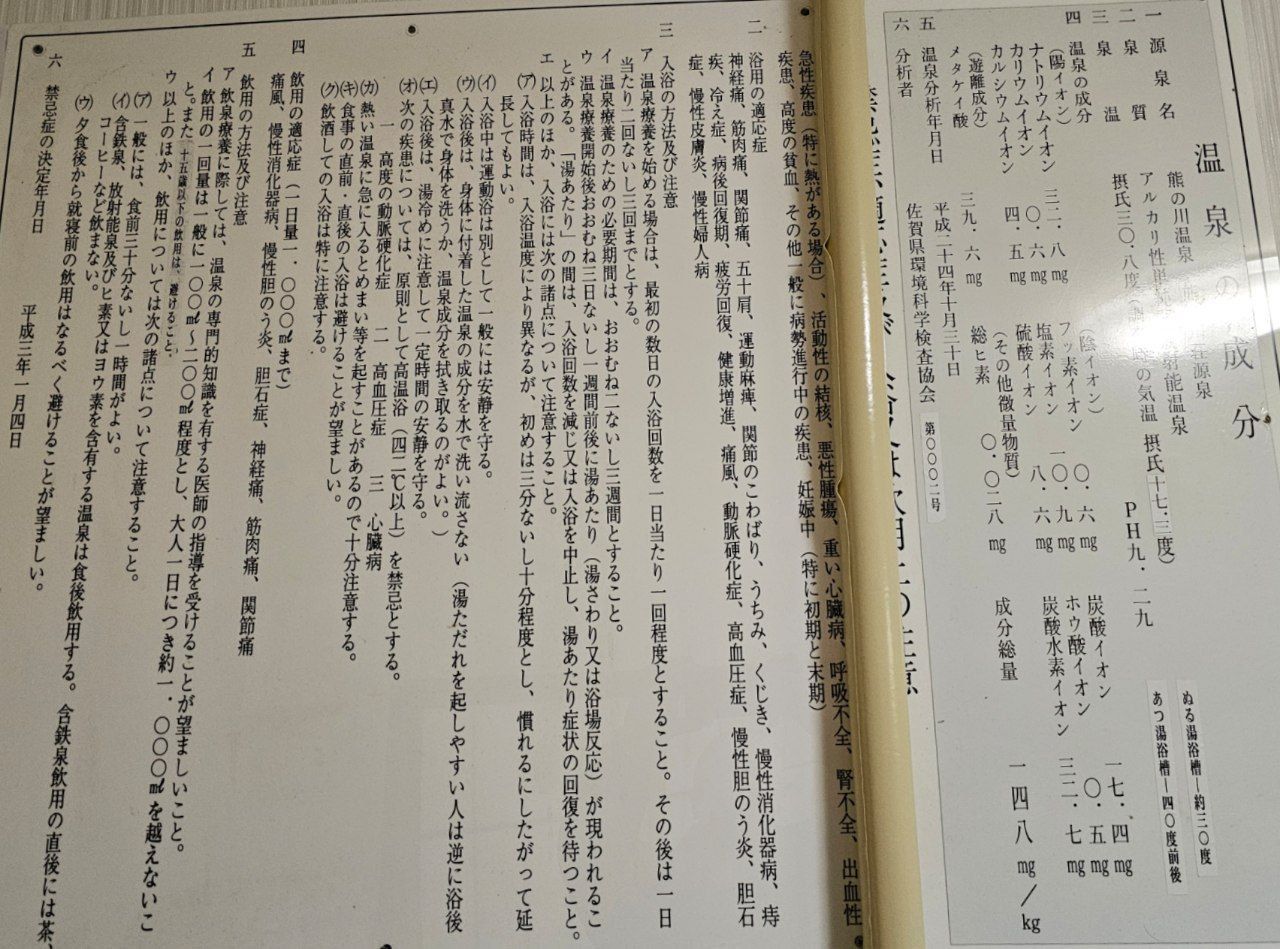 温泉の成分
一 源泉名 熊の川温泉
二 泉質 アルカリ性単純 射能温泉
三 泉温 摂氏三〇.八度 の気温 摂氏十七.三度)
PH九.二九
ぬる湯浴槽―約三〇度
あつ湯浴槽―四〇度前後
四 温泉の成分
(陽イオン)
ナトリウムイオン 三二.八mg
カリウムイオン 〇.六mg
カルシウムイオン 四.五mg
(陰イオン)
フッ素イオン 〇.六mg
塩素イオン 一〇.九mg
硫酸イオン 八.六mg
炭酸イオン 一七.四mg
ホウ酸イオン 〇.五mg
炭酸水素イオン 三二.七mg
(遊離成分)
メタケイ酸 三九.六mg
(その他微量物質)
総ヒ素 〇.〇二八mg
成分総量 一四八mg/kg
五 温泉分析年月日 平成二十四年十月三十日
六 分析者 佐賀県環境科学検査協会 第〇〇〇二号
急性疾患(特に熱がある場合)、活動性の結核、悪性腫瘍、重い心臓病、呼吸不全、腎不全、出血性
疾患、高度の貧血、その他一般に病勢進行中の疾患、妊娠中(特に初期と末期)
二 浴用の適応症
神経痛、筋肉痛、関節痛、五十肩、運動麻痺、関節のこわばり、うちみ、くじき、慢性消化器病、痔
疾、冷え症、病後回復期、疲労回復、健康増進、痛風、動脈硬化症、高血圧症、慢性胆のう炎、胆石
症、慢性皮膚炎、慢性婦人病
三 入浴の方法及び注意
ア 温泉療養を始める場合は、最初の数日の入浴回数を一日当たり一回程度とすること。その後は一日
当たり二回ないし三回までとする。
イ 温泉療養のための必要期間は、おおむね二ないし三週間とすること。
ウ 温泉療養開始後おおむね三日ないし一週間前後に湯あたり(湯さわり又は浴場反応)が現われるこ
とがある。「湯あたり」の間は、入浴回数を減じ又は入浴を中止し、湯あたり症状の回復を待つこと。
エ 以上のほか、入浴には次の諸点について注意すること。
(ア) 入浴時間は、入浴温度により異なるが、初めは三分ないし十分程度とし、慣れるにしたがって延
長してもよい。
(イ) 入浴中は運動浴は別として一般には安静を守る。
(ウ) 入浴後は、身体に付着した温泉の成分を水で洗い流さない(湯ただれを起しやすい人は逆に浴後
真水で身体を洗うか、温泉成分を拭き取るのがよい。)
(エ) 入浴後は、湯冷めに注意して一定時間の安静を守る。
(オ) 次の疾患については、原則として高温浴(四二℃以上)を禁忌とする。
一 高度の動脈硬化症 二 高血圧症 三 心臓病
(カ) 熱い温泉に急に入るとめまい等を起すことがあるので十分注意する。
(キ) 食事の直前・直後の入浴は避けることが望ましい。
(ク) 飲酒しての入浴は特に注意する。
四 飲用の適応症(一日量一.〇〇〇mlまで)
痛風、慢性消化器病、慢性胆のう炎、胆石症、神経痛、筋肉痛、関節痛
五 飲用の方法及び注意
ア 飲泉療養に際しては、温泉の専門的知識を有する医師の指導を受けることが望ましいこと。
イ 飲用の一回量は一般に一〇〇ml~二〇〇ml程度とし、大人一日につき約一.〇〇〇mlを越えないこ
と。また十五歳以下の飲用は、避けること。
ウ 以上のほか、飲用については次の諸点について注意すること。
(ア) 一般には、食前三十分ないし一時間がよい。
(イ) 含鉄泉、放射能泉及びヒ素又はヨウ素を含有する温泉は食後飲用する。含鉄泉飲用の直後には茶、
コーヒーなど飲まない。
(ウ) 夕食後から就寝前の飲用はなるべく避けることが望ましい。
六 禁忌症の決定年月日 平成三年一月四日